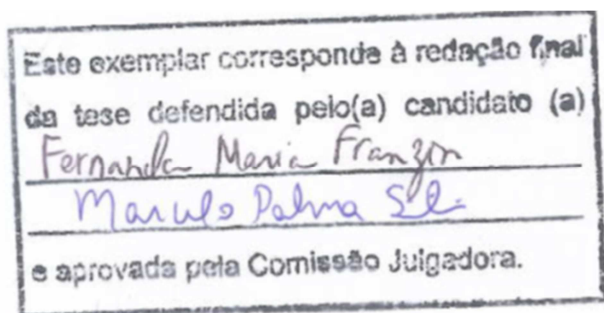 Este exemplar corresponde à redação final
da tese defendida pelo(a) candidato (a)
Fernanda Maria Franzin
Marcelo Palma
e aprovada pela Comissão Julgadora.